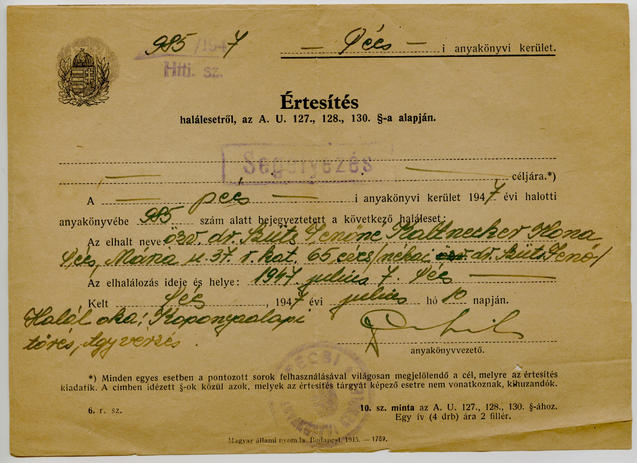 985/1947 — Pécs — i anyakönyvi kerület.
Hiti. sz.
Értesítés
halálesetről, az A. U. 127., 128., 130. §-a alapján.
Segélyezés
céljára.*)
A — Pécs — i anyakönyvi kerület 1947 évi halotti
anyakönyvébe 985 szám alatt bejegyeztetett a következő haláleset:
Az elhalt neve: özv. dr. Süts Jenőné Kaltnecker Ilona
Pécs, Mária u. 37. r. kat. 65 éves /néhai dr. Süts Jenő/
Az elhalálozás ideje és helye: 1947 július 7. Pécs
Kelt Pécs, 1947 évi július hó 10 napján.
Halál oka: Koponyaalapi
törés, Agyvérzés.
anyakönyvvezető.
*) Minden egyes esetben a pontozott sorok felhasználásával világosan megjelölendő a cél, melyre az értesítés
kiadatik. A címben idézett §-ok közül azok, melyek az értesítés tárgyát képező esetre nem vonatkoznak, kihuzandók.
6. r. sz.
10. sz. minta az A. U. 127., 128., 130. §-ához.
Egy ív (4 drb) ára 2 fillér.
Magyar állami nyomda. Budapest, 1915. — 1789.
PÉCSI